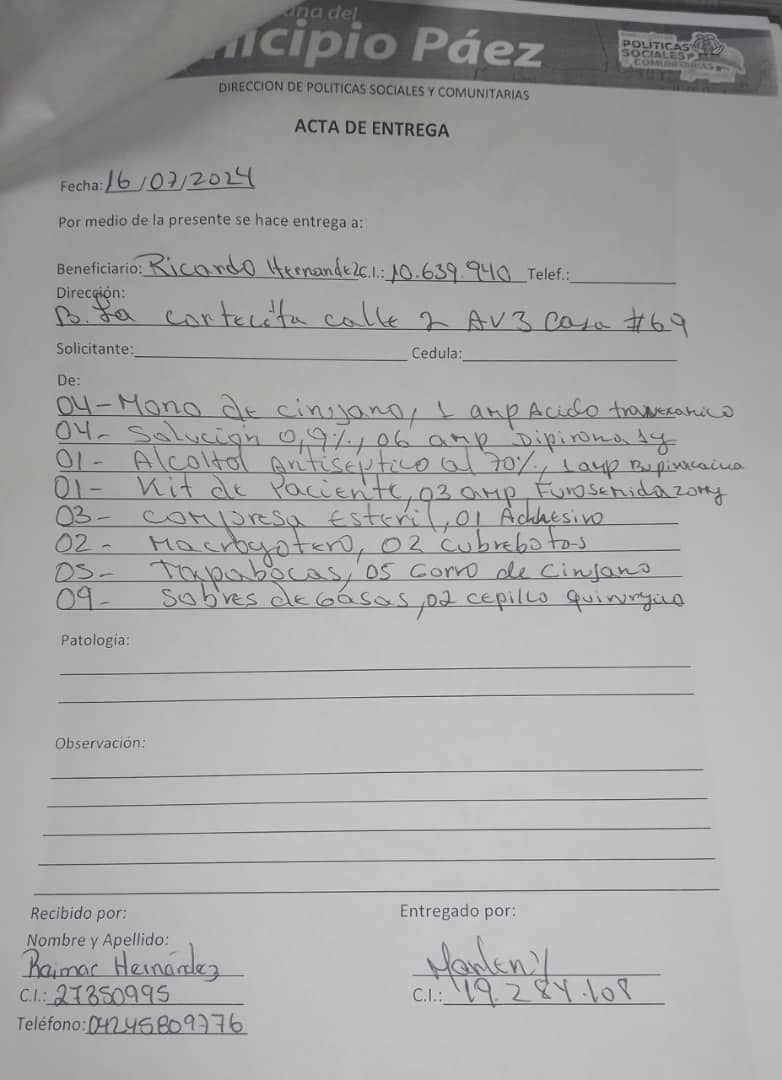 ana del
nicipio Páez
POLÍTICAS
SOCIALES Y
COMUNITARIAS
DIRECCION DE POLITICAS SOCIALES Y COMUNITARIAS
ACTA DE ENTREGA
Fecha: 16/07/2024
Por medio de la presente se hace entrega a:
Beneficiario: Ricardo Hernandez C.I.: 10.639.940 Telef.:
Dirección:
B. La cortecita calle 2 AV3 Casa #69
Solicitante: Cedula:
De:
04-Mono de cirujano, 1 amp Acido tranexanico
04- Solución 0,9%, 06 amp Dipirona 1g
01- Alcohol Antiseptico al 70%, 1 amp Bupivacaina
01- Kit de Paciente, 03 amp Furosemida 20mg
03- compresa Esteril, 01 Adhesivo
02- Macrogotero, 02 cubrebotas
05- Tapabocas, 05 Gorro de Cirujano
09- Sobres de Gasas, 02 cepillo quirurgico
Patología:
Observación:
Recibido por: Entregado por:
Nombre y Apellido:
Raimar Hernández Marleny
C.I.: 27350995 C.I.: 19.284.108
Teléfono: 04245809776